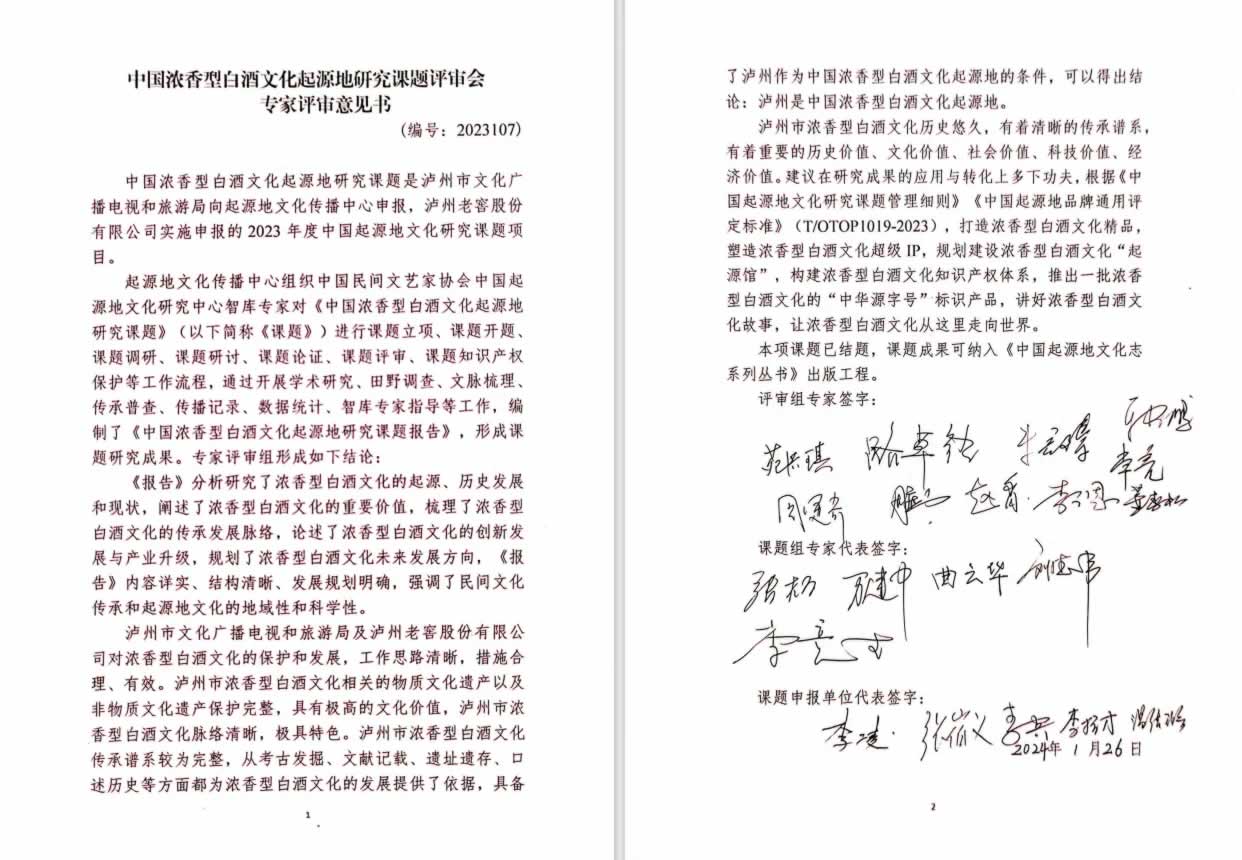 中国浓香型白酒文化起源地研究课题评审会
专家评审意见书
（编号：2023107）
中国浓香型白酒文化起源地研究课题是泸州市文化广
播电视和旅游局向起源地文化传播中心申报，泸州老窖股份
有限公司实施申报的 2023 年度中国起源地文化研究课题项
目。
起源地文化传播中心组织中国民间文艺家协会中国起
源地文化研究中心智库专家对《中国浓香型白酒文化起源地
研究课题》（以下简称《课题》）进行课题立项、课题开题、
课题调研、课题研讨、课题论证、课题评审、课题知识产权
保护等工作流程，通过开展学术研究、田野调查、文脉梳理、
传承普查、传播记录、数据统计、智库专家指导等工作，编
制了《中国浓香型白酒文化起源地研究课题报告》，形成课
题研究成果。专家评审组形成如下结论：
《报告》分析研究了浓香型白酒文化的起源、历史发展
和现状，阐述了浓香型白酒文化的重要价值，梳理了浓香型
白酒文化的传承发展脉络，论述了浓香型白酒文化的创新发
展与产业升级，规划了浓香型白酒文化未来发展方向，《报
告》内容详实、结构清晰、发展规划明确，强调了民间文化
传承和起源地文化的地域性和科学性。
泸州市文化广播电视和旅游局及泸州老窖股份有限公
司对浓香型白酒文化的保护和发展，工作思路清晰，措施合
理、有效。泸州市浓香型白酒文化相关的物质文化遗产以及
非物质文化遗产保护完整，具有极高的文化价值，泸州市浓
香型白酒文化脉络清晰，极具特色。泸州市浓香型白酒文化
传承谱系较为完整，从考古发掘、文献记载、遗址遗存、口
述历史等方面都为浓香型白酒文化的发展提供了依据，具备
1
了泸州作为中国浓香型白酒文化起源地的条件，可以得出结
论：泸州是中国浓香型白酒文化起源地。
泸州市浓香型白酒文化历史悠久，有着清晰的传承谱系，
有着重要的历史价值、文化价值、社会价值、科技价值、经
济价值。建议在研究成果的应用与转化上多下功夫，根据《中
国起源地文化研究课题管理细则》《中国起源地品牌通用评
定标准》（T/OTOP1019-2023），打造浓香型白酒文化精品，
塑造浓香型白酒文化超级 IP，规划建设浓香型白酒文化“起
源馆”，构建浓香型白酒文化知识产权体系，推出一批浓香
型白酒文化的“中华源字号”标识产品，讲好浓香型白酒文
化故事，让浓香型白酒文化从这里走向世界。
本项课题已结题，课题成果可纳入《中国起源地文化志
系列丛书》出版工程。
评审组专家签字：
课题组专家代表签字：
曲云华
课题申报单位代表签字：
2024年 1 月 26 日
2